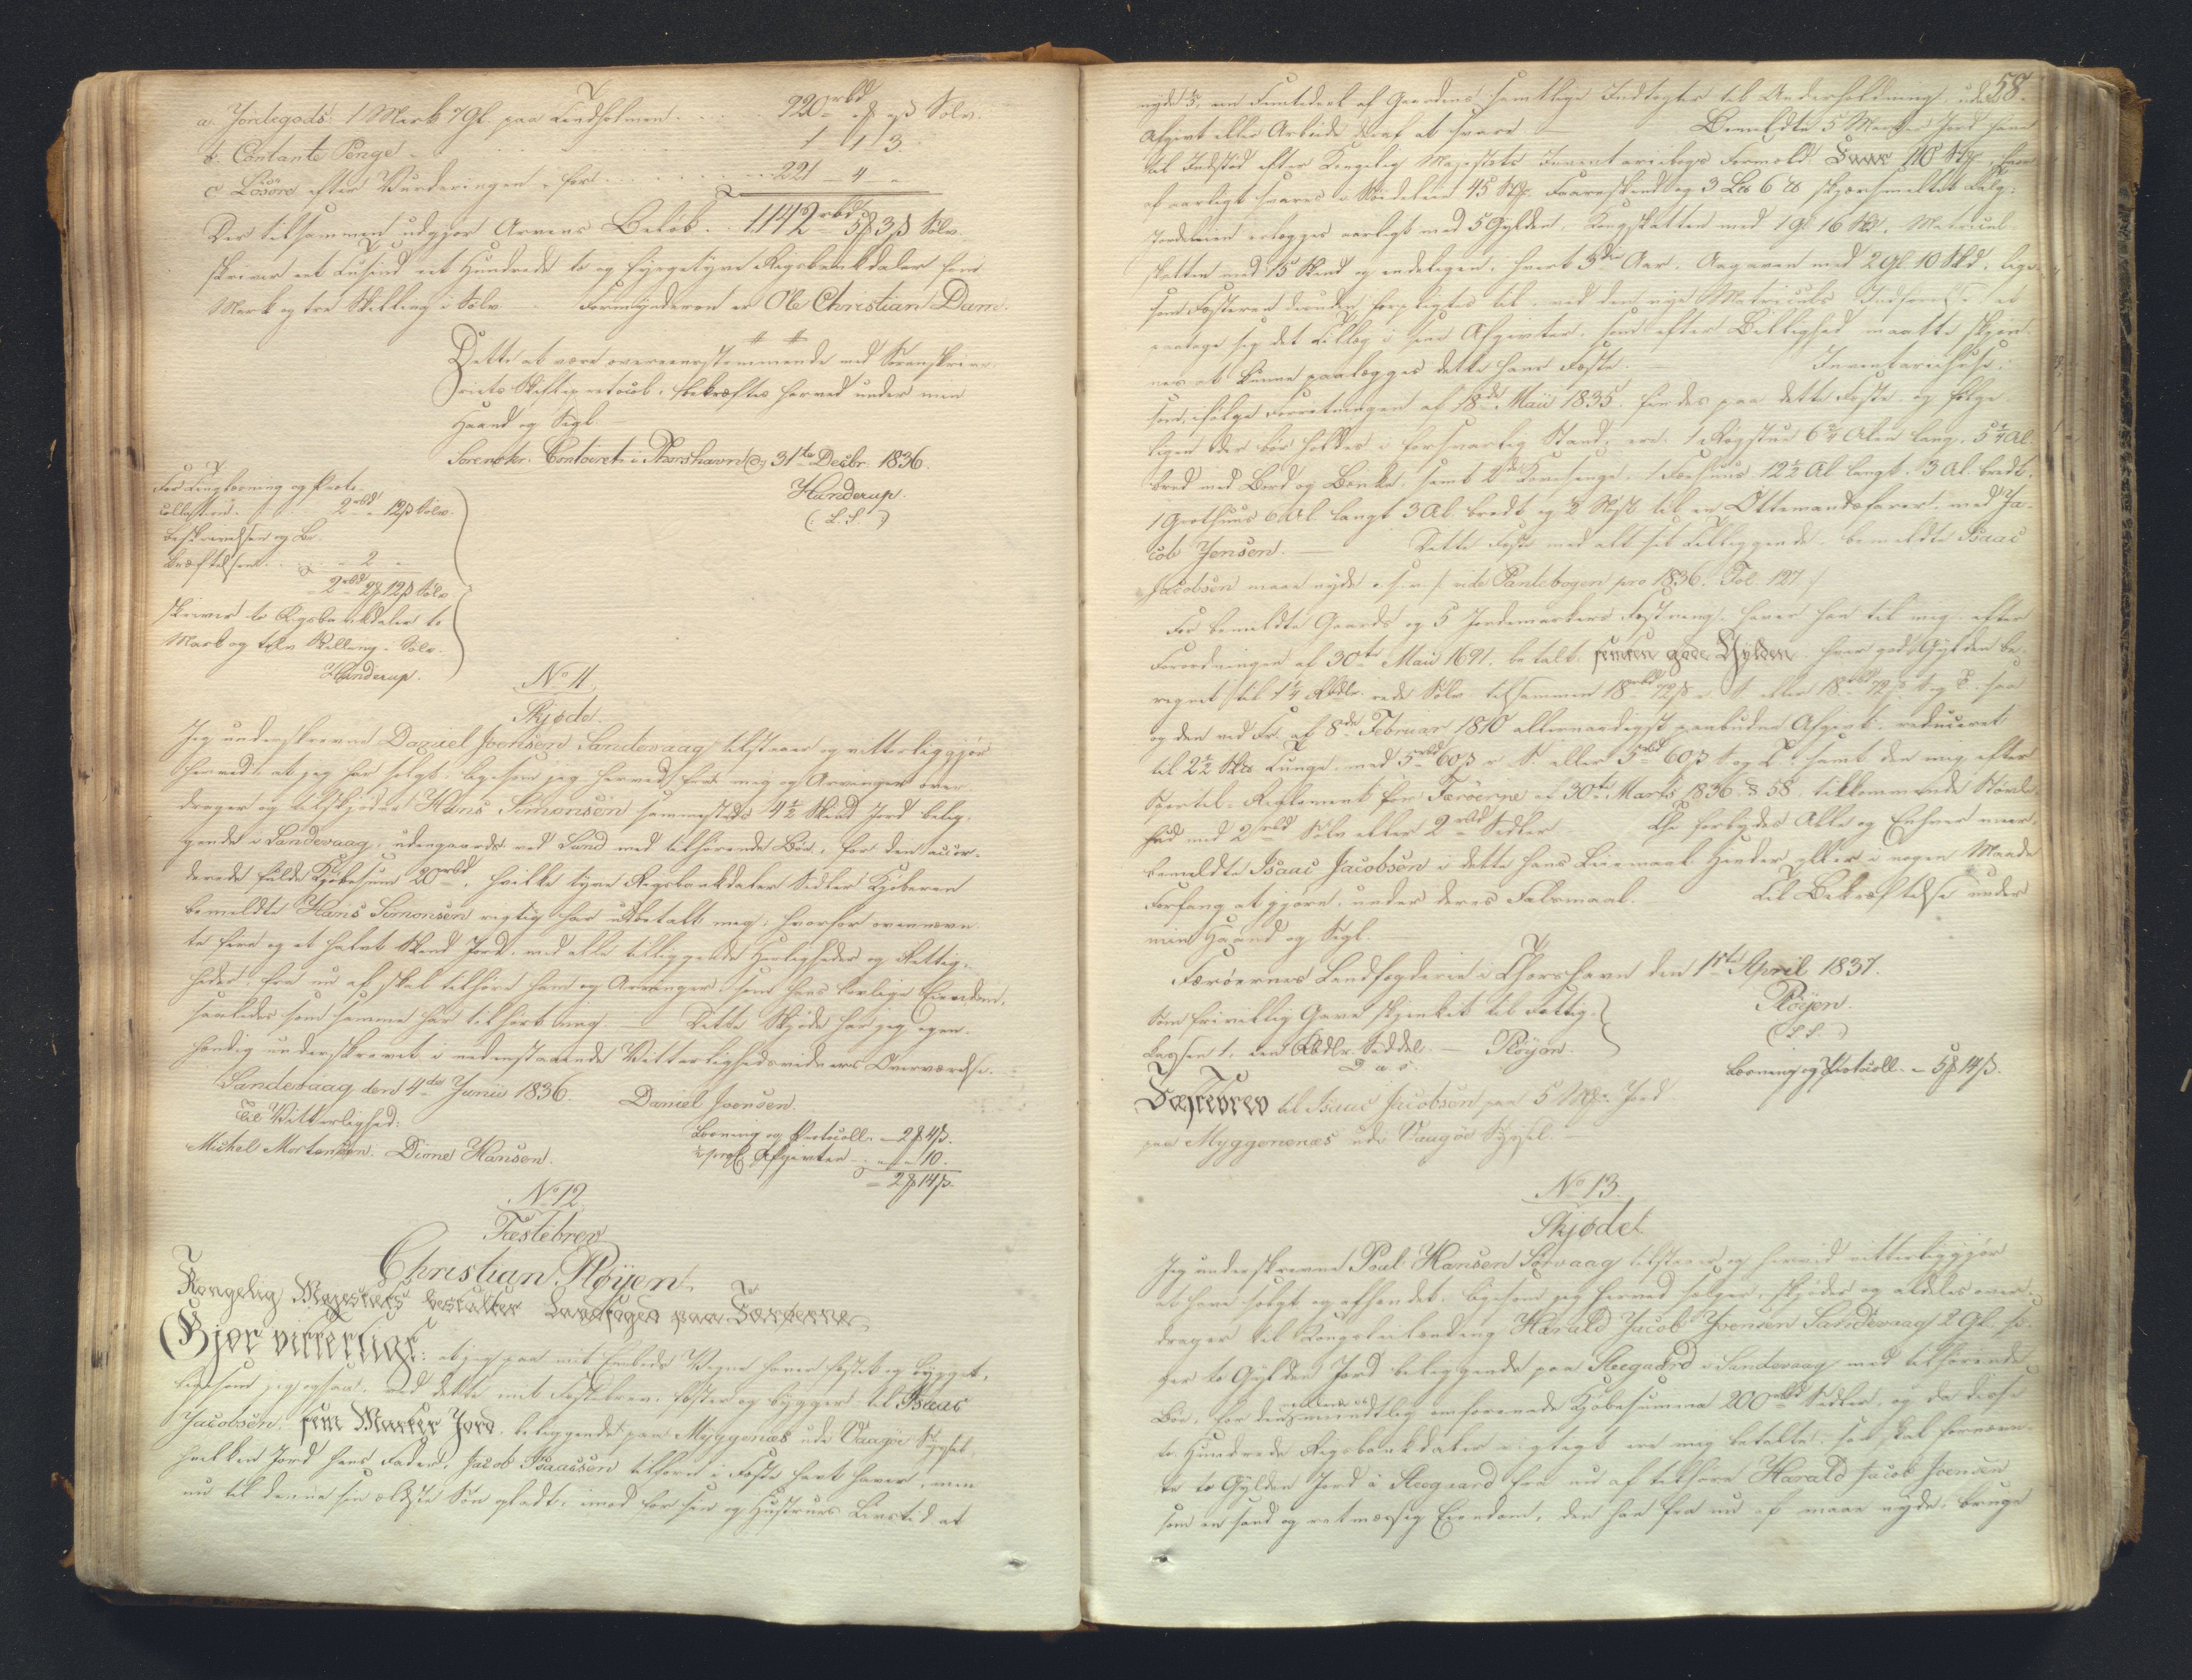 a. Jordegods: 1 Mark 7 Gl. paa Lindholmen . . . 920 rbd „ ꝟ „ ß Sølv.
b. Contante Penge . . . 1 1 3
c. Løsøre efter Vurderingen, for . . . 221 – 4 „
Der tilsammen udgjør Arvens Beløb . . 1142 rbd 5ꝟ 3ß Sølv.
skriver eet Tusind eet Hundrede to og fyrgetyve Rigsbankdaler fem
Mark og tre Skilling i Sølv. Formynderen er Ole Christian Dam.
Dette at være overeensstemmende med Sorenskrive-
riets Skifteprotocol, bekræftes herved under min
Haand og Segl
Sorenskr. Contoiret i Thorshavn d. 31te Decbr. 1836.
Handerup.
(L.S.)
For Tinglæsning og Proto-
collation . . . 2 rbd „ 12ß Sølv.
Beskrivelsen og Be-
kræftelsen . . . „ 2 „
2 rbd 2ꝟ 12ß Sølv
skriver to Rigsbankdaler to
Mark og tolv Skilling i Sølv.
Handerup.
No 11
Skjøde.
Jeg underskrevne Daniel Joensen Sandevaag tilstaaer og vitterliggjør
herved: at jeg har solgt, ligesom jeg herved fra mig og Arvinger over-
drager og tilskjøder Hans Simonsen sammesteds 4½ Skind Jord belig-
gende i Sandevaag, udengaards ved Sund med tilhørende Bøe, for den accor-
derede fulde Kjøbesum 20 rbd, hvilke tyve Rigsbankdaler Sedler Kjøberen
bemeldte Hans Simonsen rigtig har udbetalt mig; hvorfor ovennævn-
te fire og et halvt Skind Jord, med alle tilliggende Herligheder og Rettig-
heder, fra nu af skal tilhøre ham og Arvinger, som hans lovlige Eiendom,
saaledes som samme har tilhørt mig. Dette Skjøde har jeg egen-
hændig underskrevet i nedenstaaende Vitterlighedsvidners Overværelse.
Sandevaag, den 4de Junii 1836. Daniel Joensen.
Til Vitterlighed:
Michel Mortensen. Dione Hansen.
Læsning og Protocoll. – 2ꝟ 4ß.
½ proCt Afgivten – „ „ 10.
– 2ꝟ 14ß.
No 12
Fæstebrev
Christian Pløyen
Kongelig Majestets bestalter Landfoged paa Færøerne
Gjør vitterligt: at jeg paa mit Embeds Vegne haver fæstet og bygget,
ligesom jeg ogsaa, ved dette mit Fæstebrev, fæster og bygger til Isaac
Jacobsen, fem Marker Jord, beliggende paa Myggenæs udi Vaagøe Syssel,
hvilken Jord hans Fader, Jacob Isaacsen tilforn i Fæste havt haver, men
nu til denne sin ældste Søn opladt, imod for sin og Hustrues Livstid at
58.
nyde ⅕, een Femtedeel af Gaardens samtlige Indtægter til Underholdning, uden
Afgivt eller Arbeide deraf at svare – Bemeldte 5 Marker Jord have
til Indstød efter Kongelig Majestets Inventariebogs Formeld. Faar 110 Stk., hvor-
af aarligt svares i Landskyld 45 Stk. Faareskind og 3 Lb 6 ℔ skjærsmeltet Talg.
Jordeleien erlægges aarligt med 5 Gylden, Kongskatten med 1 Gl. 16 Skd, Matricul-
skatten med 15 Skind og endeligen, hvert 3die Aar, Aagaven med 2 Gl. 10 Skd, lige-
som Fæsteren endnu forpligtes til ved den nye Matriculs Indførelse at
paatage sig det Tillæg i sine Afgivter, som efter Billighed maatte skjøn-
nes at kunne paalægges dette hans Fæste. Inventariehuse,
som, ifølge Forretningen af 18de Maii 1835. findes paa dette Fæste, og følge-
ligen der bør holdes i forsvarlig Stand, ere: 1 Røgstue 6¾ Alen lang, 5¾ Al.
bred med Bord og Bænke, samt 2de Kovesenge, 1 Fæehuus 12½ Al. langt, 3 Al. bredt,
1 Grothuus 6 Al. langt 3 Al. bredt og ½ Nøst til en Ottemandsfarer, med Ja-
cob Jensen. — Dette Fæste med alt sit Tilliggende, bemeldte Isaac
Jacobsen maae nyde o.s.v. (: vide Pantebogen pro 1836. Fol. 127 :)
For bemeldte Gaards og 5 Jordemarkers Fæstning, haver han til mig, efter
Forordningen af 30te Maii 1691. betalt, femten gode Gylden, hver god Gylden be-
regnet til 1¼ Rbdlr. rede Sølv tilsammen 18 rbd 72ß r. S. eller 18 rbd 72ß S. og T. saa
og den ved Fr. af 8de Februar 1810 allernaadigst paabudne Afgivt, reduceret
til 2½ Skd. Tunge, med 5 rbd 60ß r. S. eller 5 rbd 60ß S. og T. samt den mig, efter
Sportel-Reglement for Færøerne af 30te Marts 1836. § 58. tilkommende Støvle-
hud med 2 rbd Sølv eller 2 rbd Sedler Thi forbydes Alle og Enhver mere-
bemeldte Isaac Jacobsen i dette hans Leiemaal Hinder eller i nogen Maade
Forfang at gjøre, under deres Falsmaal. Til Bekræftelse under
min Haand og Segl.
Færøernes Landfogderie i Thorshavn den 1ste April 1837.
Som frivillig Gave skjenket til Fattig-
Cassen 1. een Rbdlr. Seddel. – Pløyen.
Pløyen.
(L.S.)
Læsning og Protocoll. – 5ꝟ 14ß.
Fæstebrev til Isaac Jacobsen paa 5 Mkr. Jord
paa Myggenenæs udi Vaagøe Syssel. –
No 13.
Skjødet
Jeg underskrevne Poul Hansen Sørvaag tilstaaer og herved vitterliggjør
at have solgt og afhændet, ligesom jeg herved sælger, skjøder og aldeles over-
drager til Kongsleilænding Harald Jacob Joensen Sandevaag 2 Gl. si-
ger to Gylden Jord beliggende paa Steegaard i Sandevaag med tilhørende
Bøe, for den imellem os mundtlig omforenede Kjøbesumma 200 rbd Sedler, og da disse
to Hundrede Rigsbankdaler rigtigt ere mig betalte, saa skal fornævn-
te to Gylden Jord i Steegaard fra nu af tilhøre Harald Jacob Joensen
som en sand og retmæssig Eiendom, den han fra nu af maae nyde, bruge